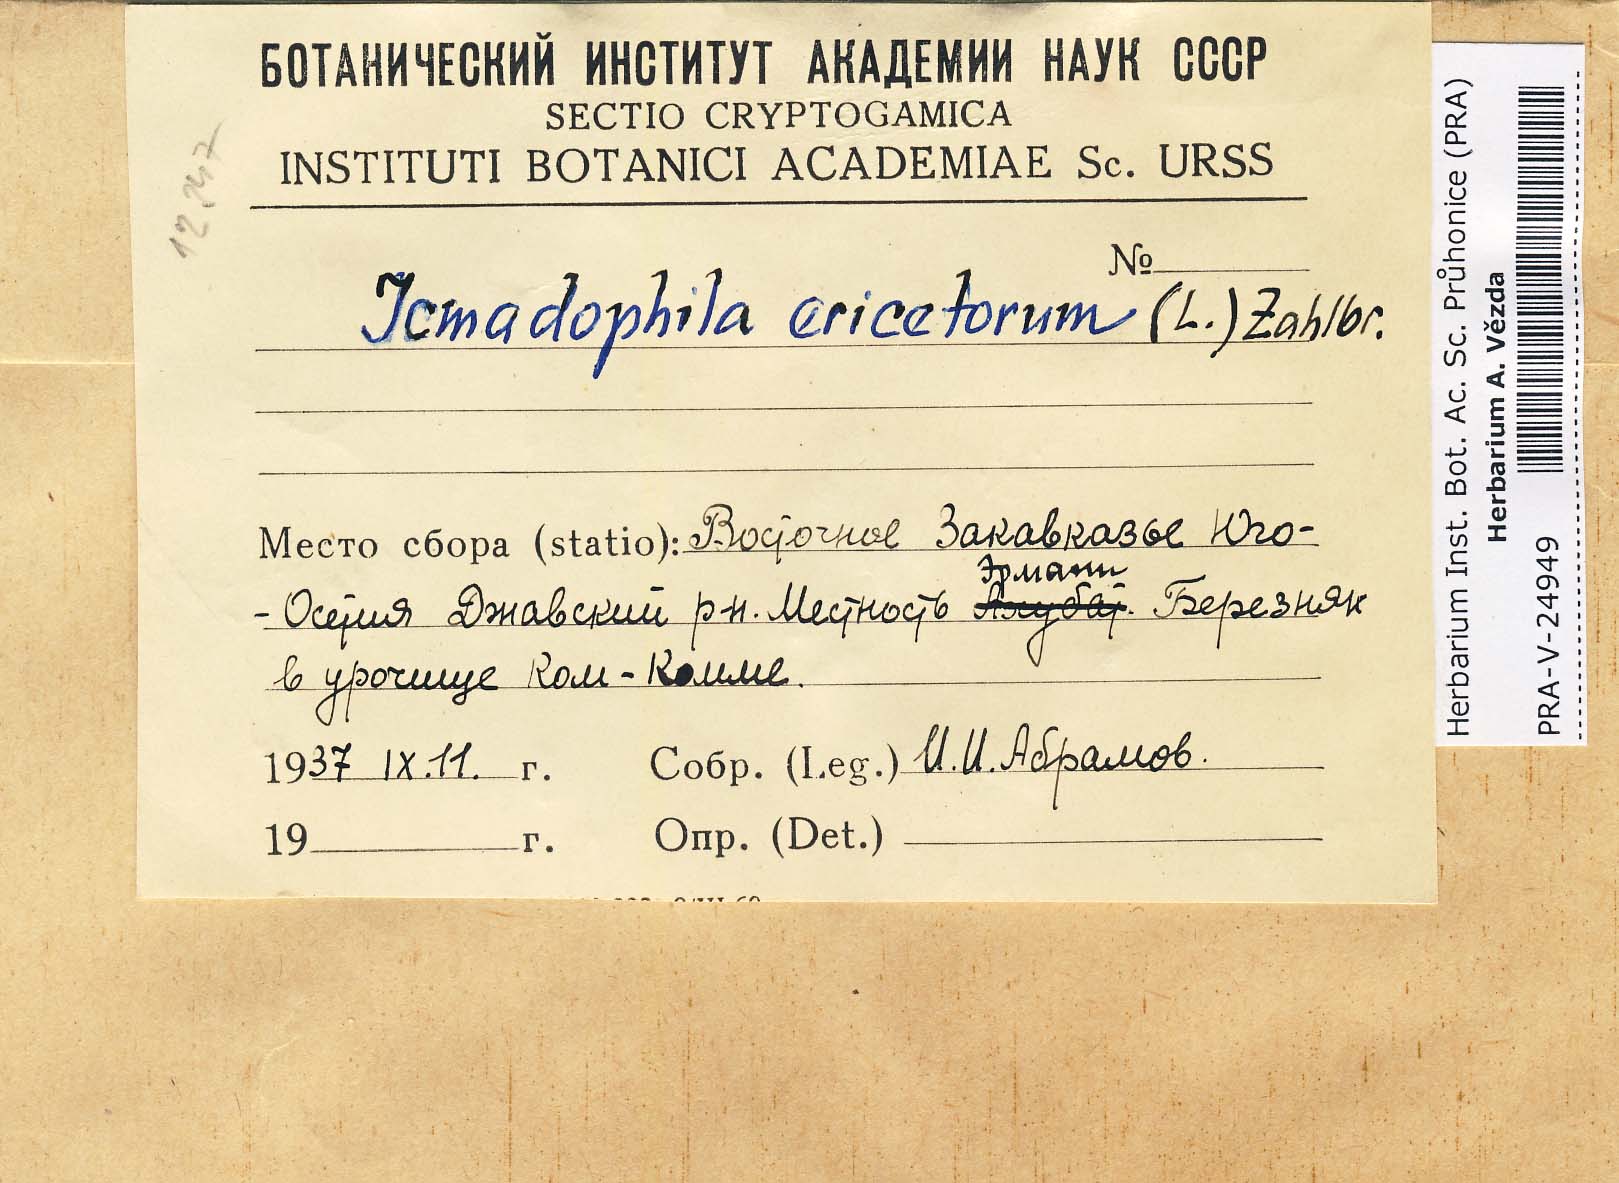 БОТАНИЧЕСКИЙ ИНСТИТУТ АКАДЕМИИ НАУК СССР
SECTIO CRYPTOGAMICA
INSTITUTI BOTANICI ACADEMIAE Sc. URSS
№
Icmadophila ericetorum (L.) Zahlbr.
Место сбора (statio): Восточное Закавказье Юго-
Эрмани
-Осетия Джавский р-н. Местность Березняк
в урочище Ком-Комме.
1937 IX.11. г. Собр. (Leg.) И.И.Абрамов.
19 г. Опр. (Det.)
Herbarium Inst. Bot. Ac. Sc. Průhonice (PRA)
Herbarium A. Vězda
PRA-V-24949